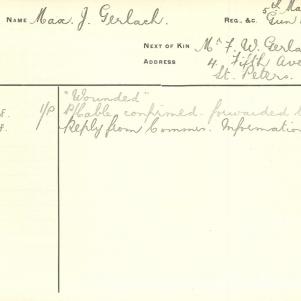 NAME Max J. Gerlach. REG., &C. 5th Ma
Gun
NEXT OF KIN Mr F. W. Gerla
ADDRESS 4. Fifth Ave
St. Peters.
"Wounded"
8. 1/P Cable confirmed. forwarded t
8. Reply from Commr. Information